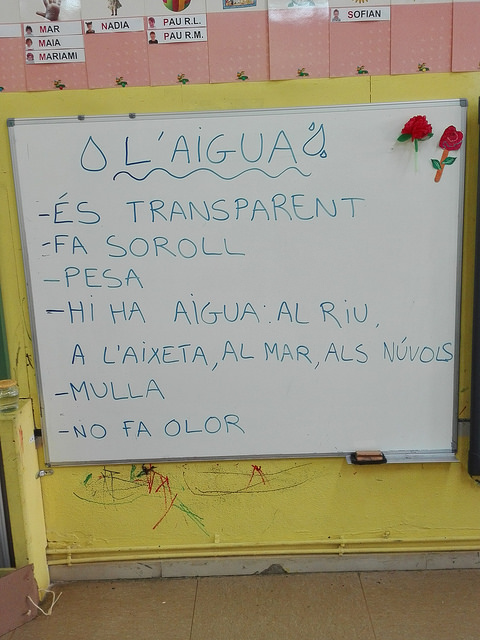 MAR
MAIA
MARIAMI
NADIA
PAU R.L.
PAU R.M.
SOFIAN
L'AIGUA
-ÉS TRANSPARENT
-FA SOROLL
-PESA
-HI HA AIGUA: AL RIU,
A L'AIXETA, AL MAR, ALS NÚVOLS
-MULLA
-NO FA OLOR